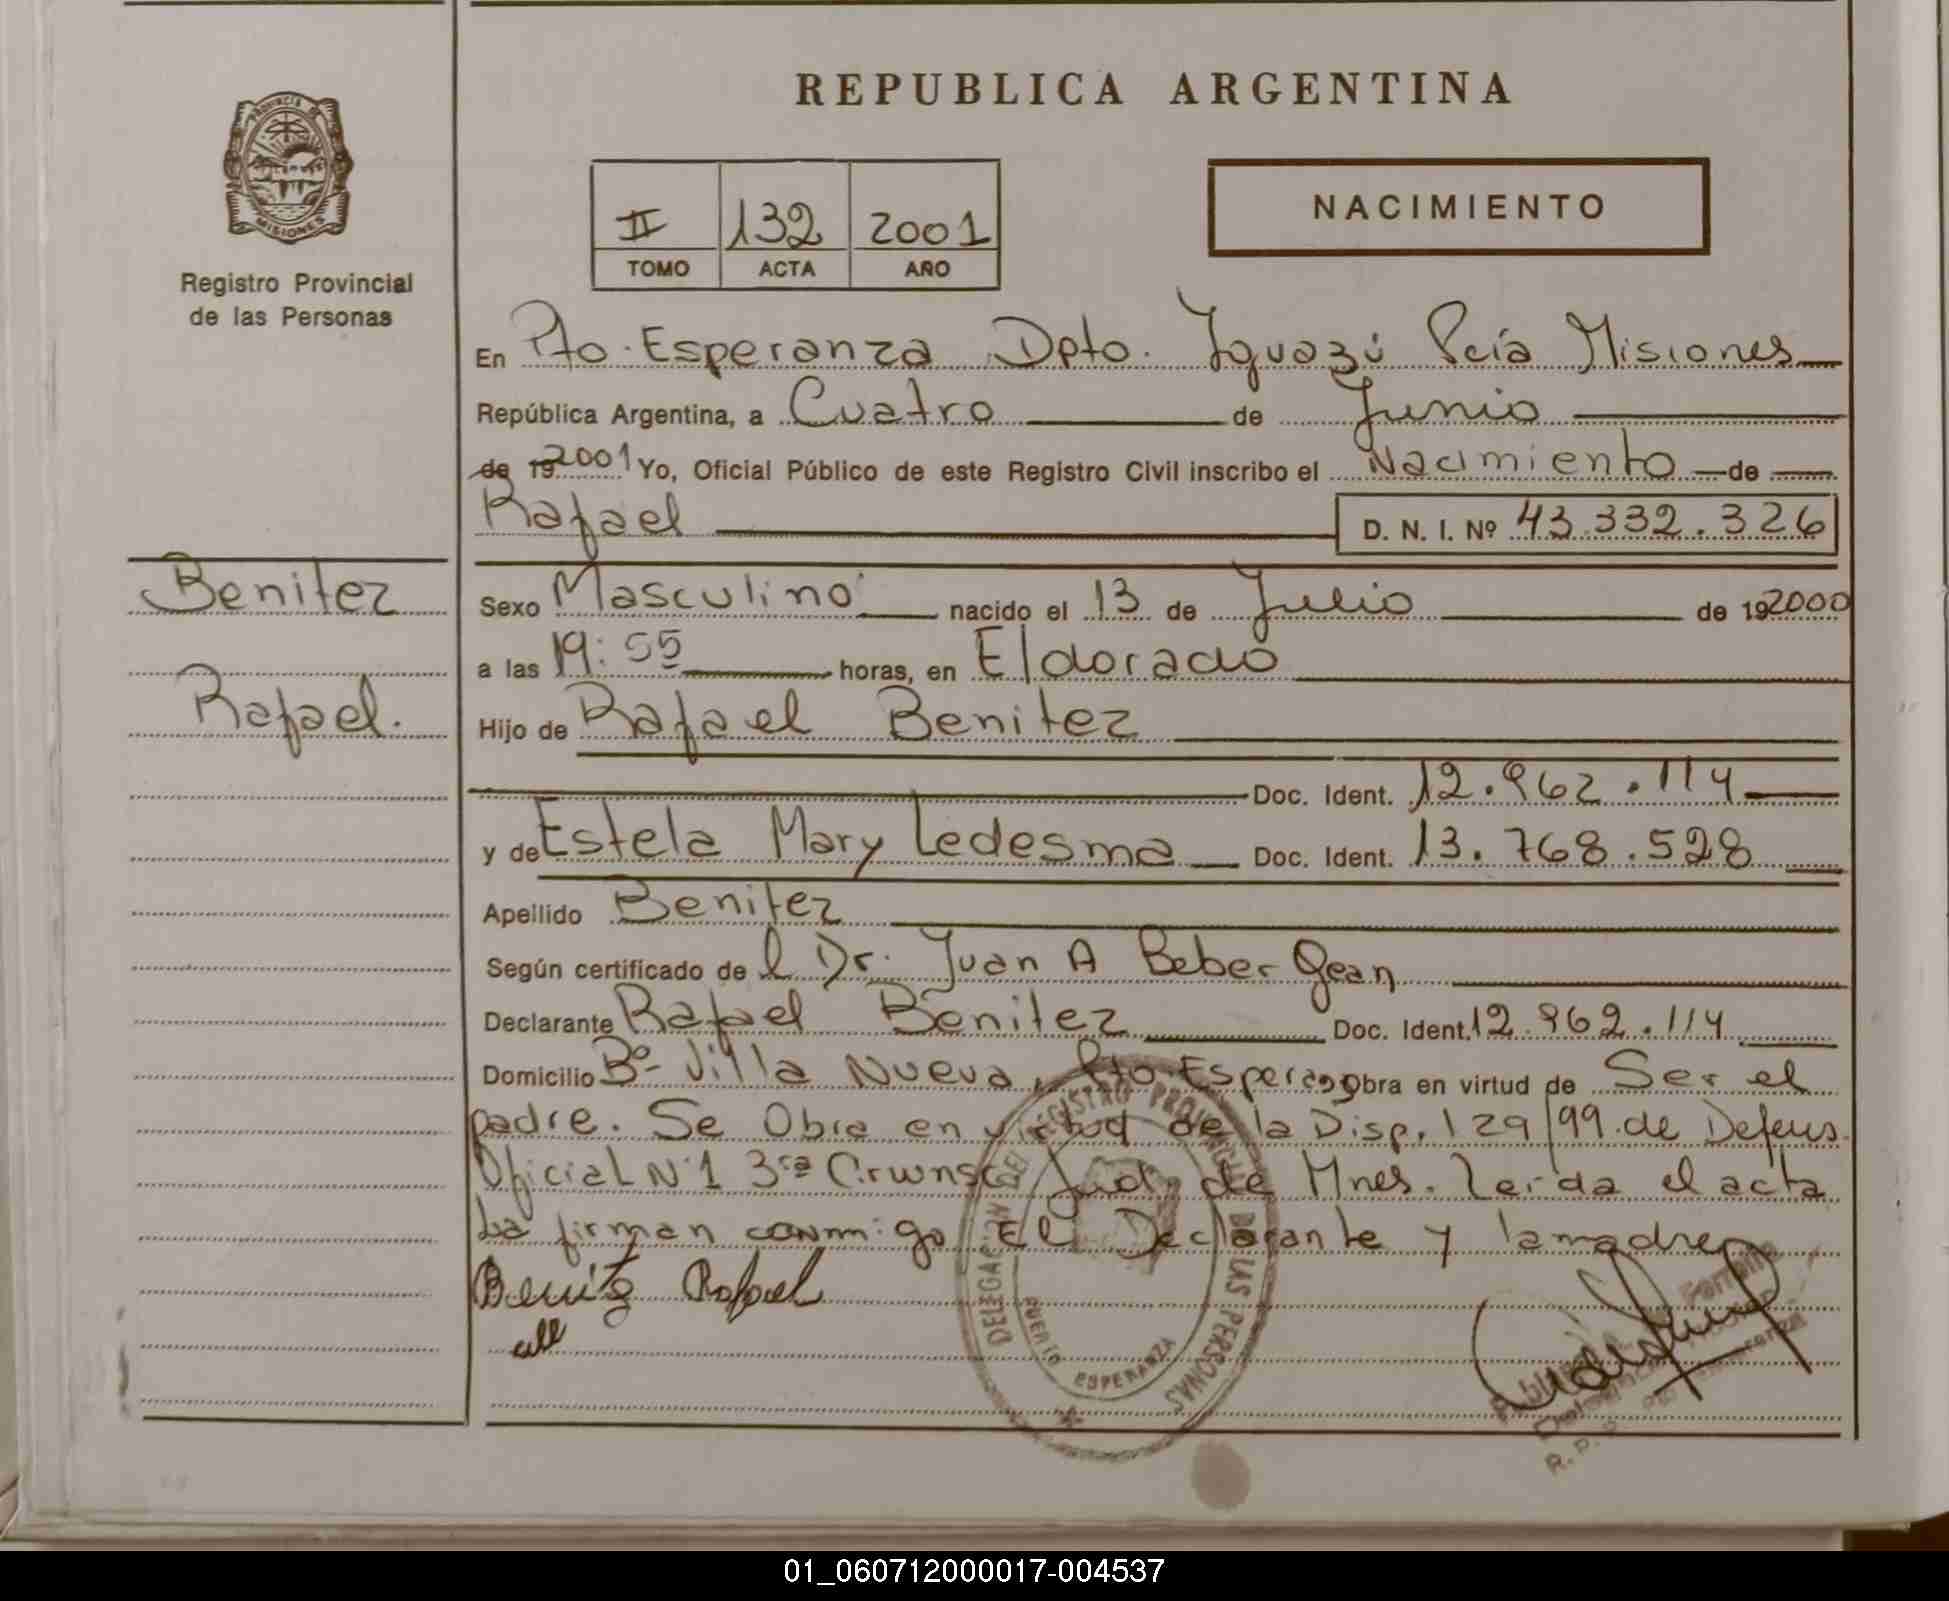 REPUBLICA ARGENTINA
PROVINCIA DE
MISIONES
Registro Provincial
de las Personas
II 132 2001
TOMO ACTA AÑO
NACIMIENTO
En Pto. Esperanza Dpto. Iguazú Pcia Misiones
República Argentina, a Cuatro de Junio
de 19 2001 Yo, Oficial Público de este Registro Civil inscribo el Nacimiento de
Rafael D. N. I. Nº 43.332.326
Benitez
Rafael.
Sexo Masculino nacido el 13 de Julio de 19 2000
a las 19:55 horas, en Eldorado
Hijo de Rafael Benitez
Doc. Ident. 12.962.114
y de Estela Mary Ledesma Doc. Ident. 13.768.528
Apellido Benitez
Según certificado de l Dr. Juan A Beber Gean
Declarante Rafael Benitez Doc. Ident. 12.962.114
Domicilio Bº Villa Nueva, Pto Esperanz obra en virtud de Ser el
padre. Se Obra en virtud de la Disp. 129/99 de Defens.
Oficial Nº1 3ra Circunsc. Jud. de Mnes. Leida el acta
La firman conmigo El Declarante y la madre
Benitz Rafael
DELEGACION DEL REGISTRO PROVINCIAL DE LAS PERSONAS
PUERTO ESPERANZA
Ferreira
R. P. P.
01_060712000017-004537